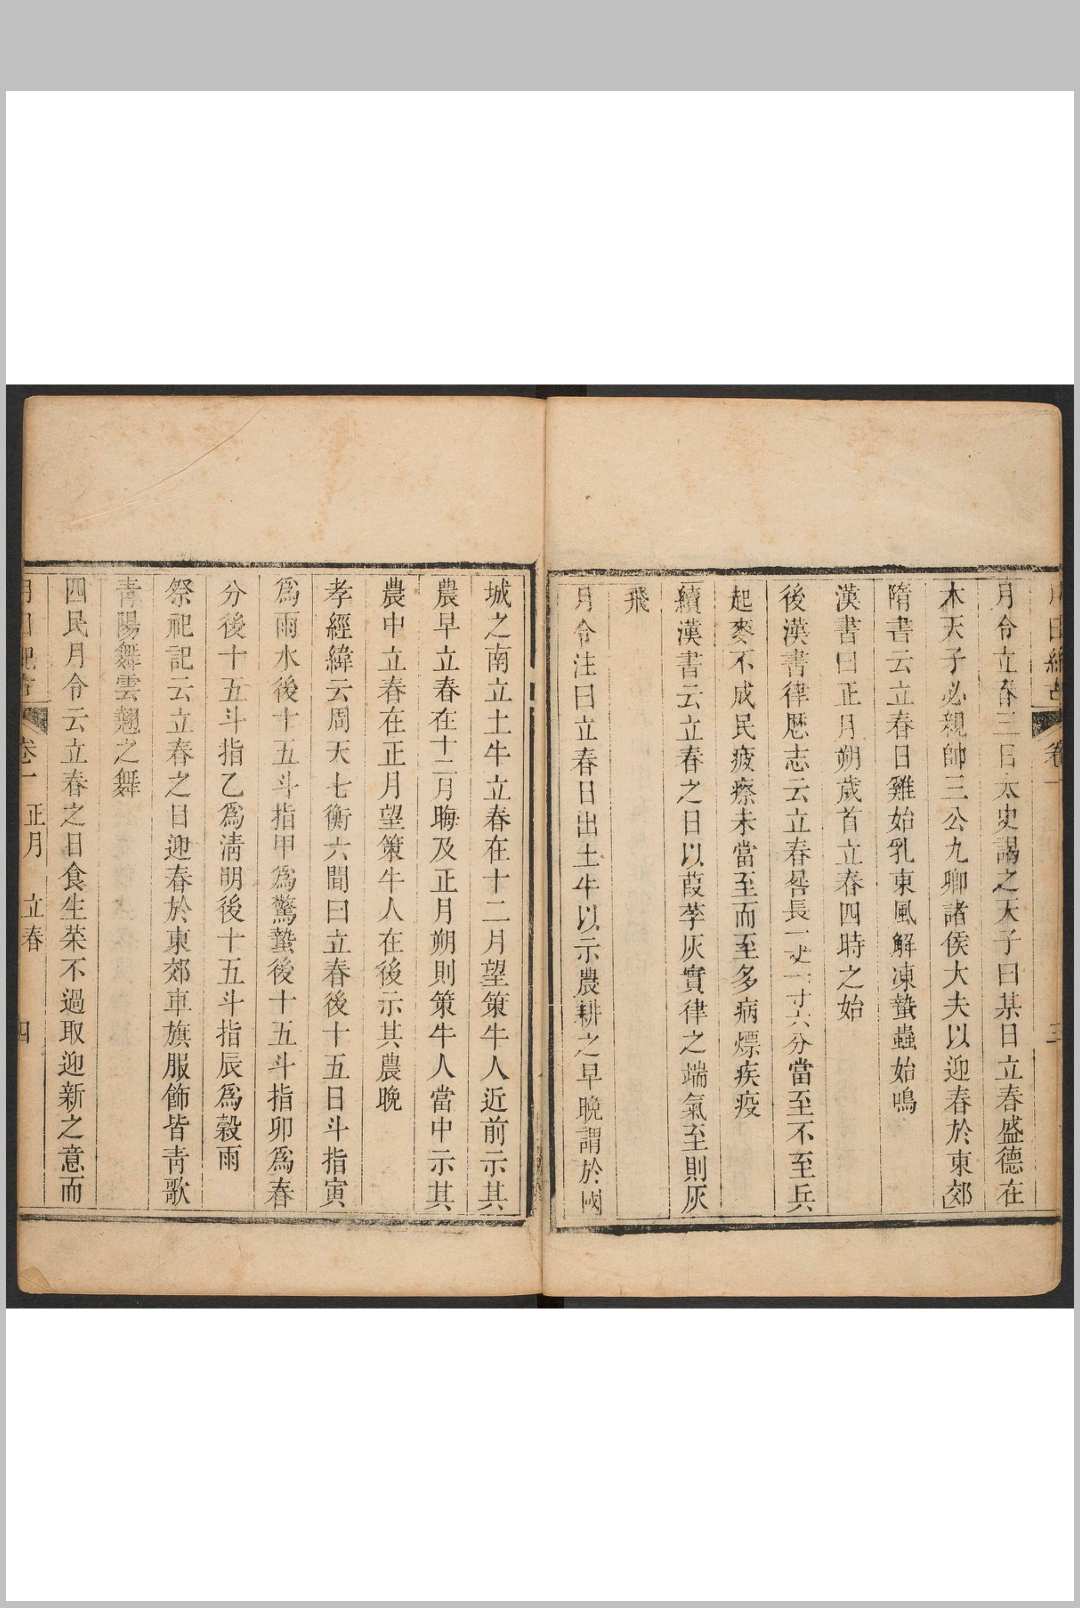 月日紀古 卷一 三
月令立春三日太史謁之天子曰某日立春盛德在
木天子必親帥三公九卿諸侯大夫以迎春於東郊
隋書云立春日雞始乳東風解凍蟄蟲始鳴
漢書曰正月朔歲首立春四時之始
後漢書律歷志云立春晷長一丈一寸六分當至不至兵
起麥不成民疲瘵未當至而至多病熛疾疫
續漢書云立春之日以葭莩灰實律之端氣至則灰
飛
月令注曰立春日出土牛以示農耕之早晚謂於國
城之南立土牛立春在十二月望策牛人近前示其
農早立春在十二月晦及正月朔則策牛人當中示其
農中立春在正月望策牛人在後示其農晚
孝經緯云周天七衡六間曰立春後十五日斗指寅
為雨水後十五斗指甲為驚蟄後十五斗指卯為春
分後十五斗指乙為清明後十五斗指辰為穀雨
祭祀記云立春之日迎春於東郊車旗服飾皆青歌
青陽舞雲翹之舞
四民月令云立春之日食生菜不過取迎新之意而
月日紀古 卷一 正月 立春 四